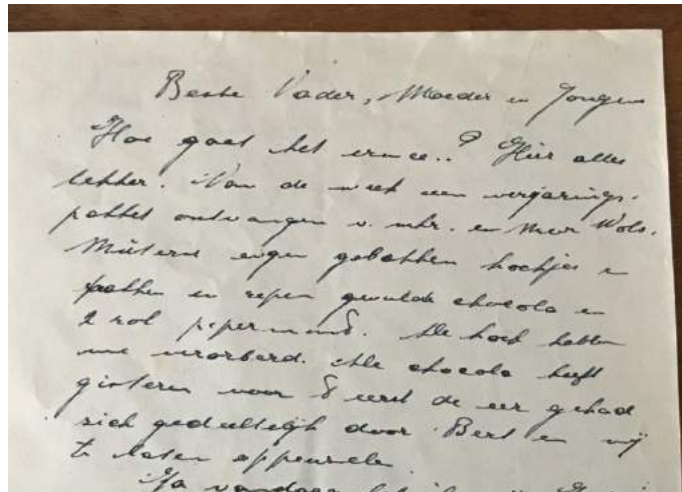 Beste Vader, Moeder en Jongens
Hoe gaat het ermee..? Hier alles
lekker. Van de week een verjarings-
pakket ontvangen v. mhr. en Mevr Wols.
eigen gebakken koekjes en
en repen gevulde chocola en
2 rol pepermunt. De koek hebben
we verorberd. De chocola heeft
gisteren voor 't eerst de eer gehad
zich gedeeltelijk door Bert en mij
te laten oppeuzelen.
Ja vandaag